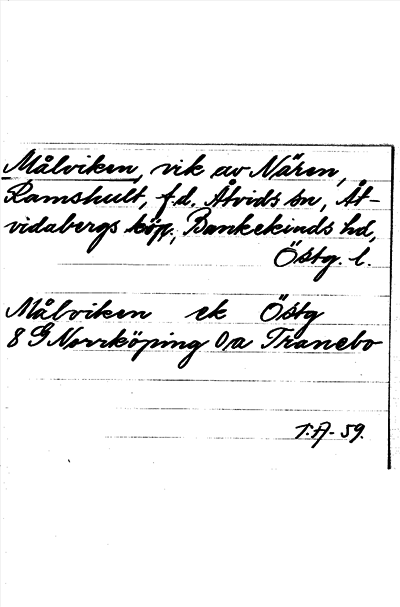 Målviken, vik av Nären,
Ramshult, f.d. Åtvids sn, Åt-
vidabergs köp., Bankekinds hd,
Östg. l.
Målviken ek Östg
8 G Norrköping 0,a Tranebo
T.A. 59.